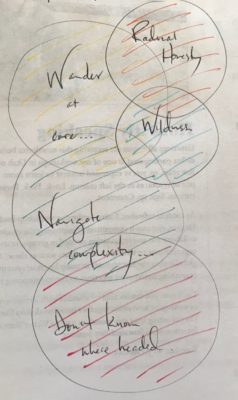 Radical
Honesty
Wonder
at
core...
Wildness
Navigate
complexity...
Don't know
where headed.